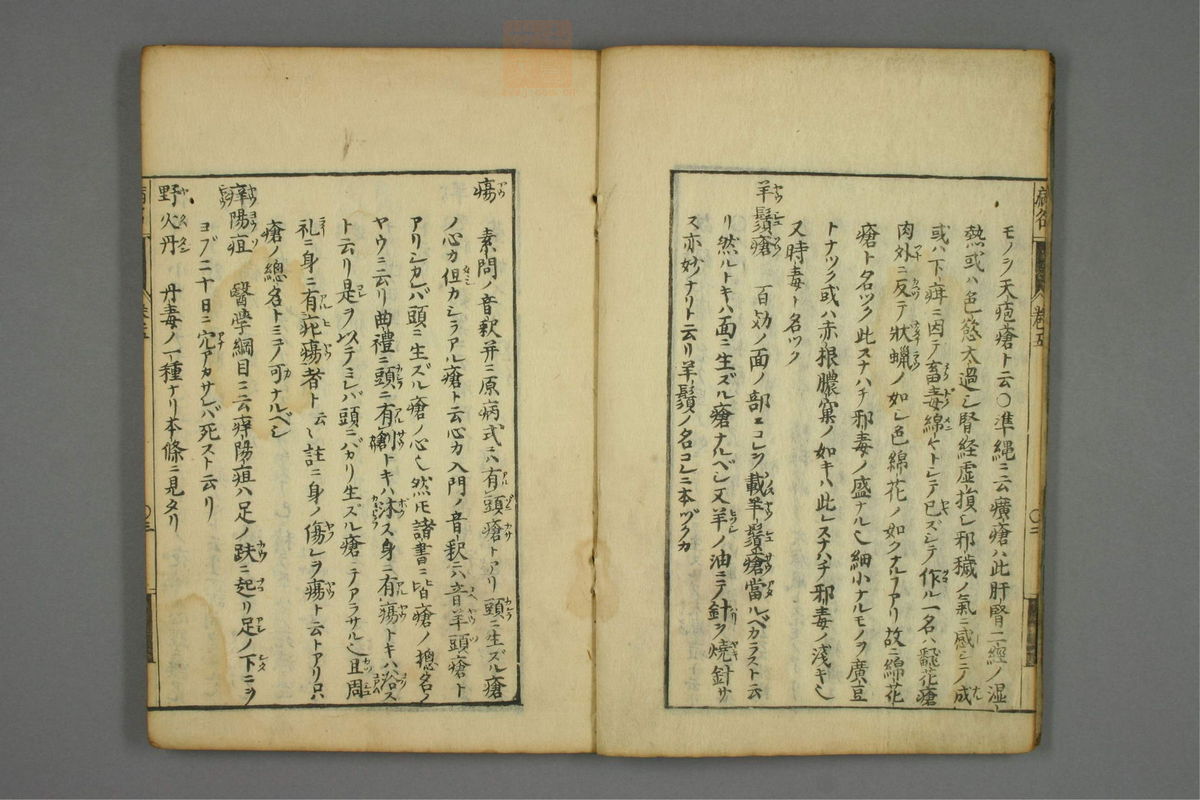 モノヲ天疱瘡ト云○準縄ニ云廣瘡ハ此肝腎二經ノ湿
熱或ハ色慾太過シ腎経虚損シ邪穢ノ氣ニ感シテ成
或ハ下疳ニ因テ畜毒綿々トシテ已ズシテ作ル一名ハ翻花瘡
肉外ニ反テ状蝋ノ如シ色綿花ノ如クナルアリ故ニ綿花
瘡ト名ツク此スナハチ邪毒ノ盛ナル也細小ナルモノヲ廣豆
トナツク或ハ赤根膿窠ノ如キハ此レスナハチ邪毒ノ浅キ也
又時毒ト名ツク
羊鬚瘡 百効ノ面ノ部ニコレヲ載羊鬚瘡當ルベカラスト云
リ然ルトキハ面ニ生ズル瘡ナルベシ又羊ノ油ニテ針ヲ燒針サ
ス亦妙ナリト云リ羊鬚ノ名コレニ本ヅクカ
瘍 素問ノ音釈并ニ原病式ニ有頭瘡トアリ頭ニ生ズル瘡
ノ心カ但カシラアル瘡ト云心カ入門ノ音釈ニ六音羊頭瘡ト
アリシカレバ頭ニ生ズル瘡ノ心也然𪜈諸書ニ皆瘡ノ惣名ノ
ヤウニ云リ曲禮ニ頭ニ有創トキハ沐ス身ニ有瘍トキハ浴ス
ト云リ是ヲ以テミレバ頭ニバカリ生ズル瘡ニテアラサル也且周
礼ニ身ニ有疕瘍者ト云々註ニ身ノ傷レヲ瘍ト云トアリ只
瘡ノ總名トミテノ可ナルベシ
痒陽疽 醫學綱目ニ云痒陽疽ハ足ノ趺ニ起リ足ノ下ニヲ
ヨブ二十日ニ穴アカサレバ死スト云リ
野火丹 丹毒ノ一種ナリ本條ニ見タリ